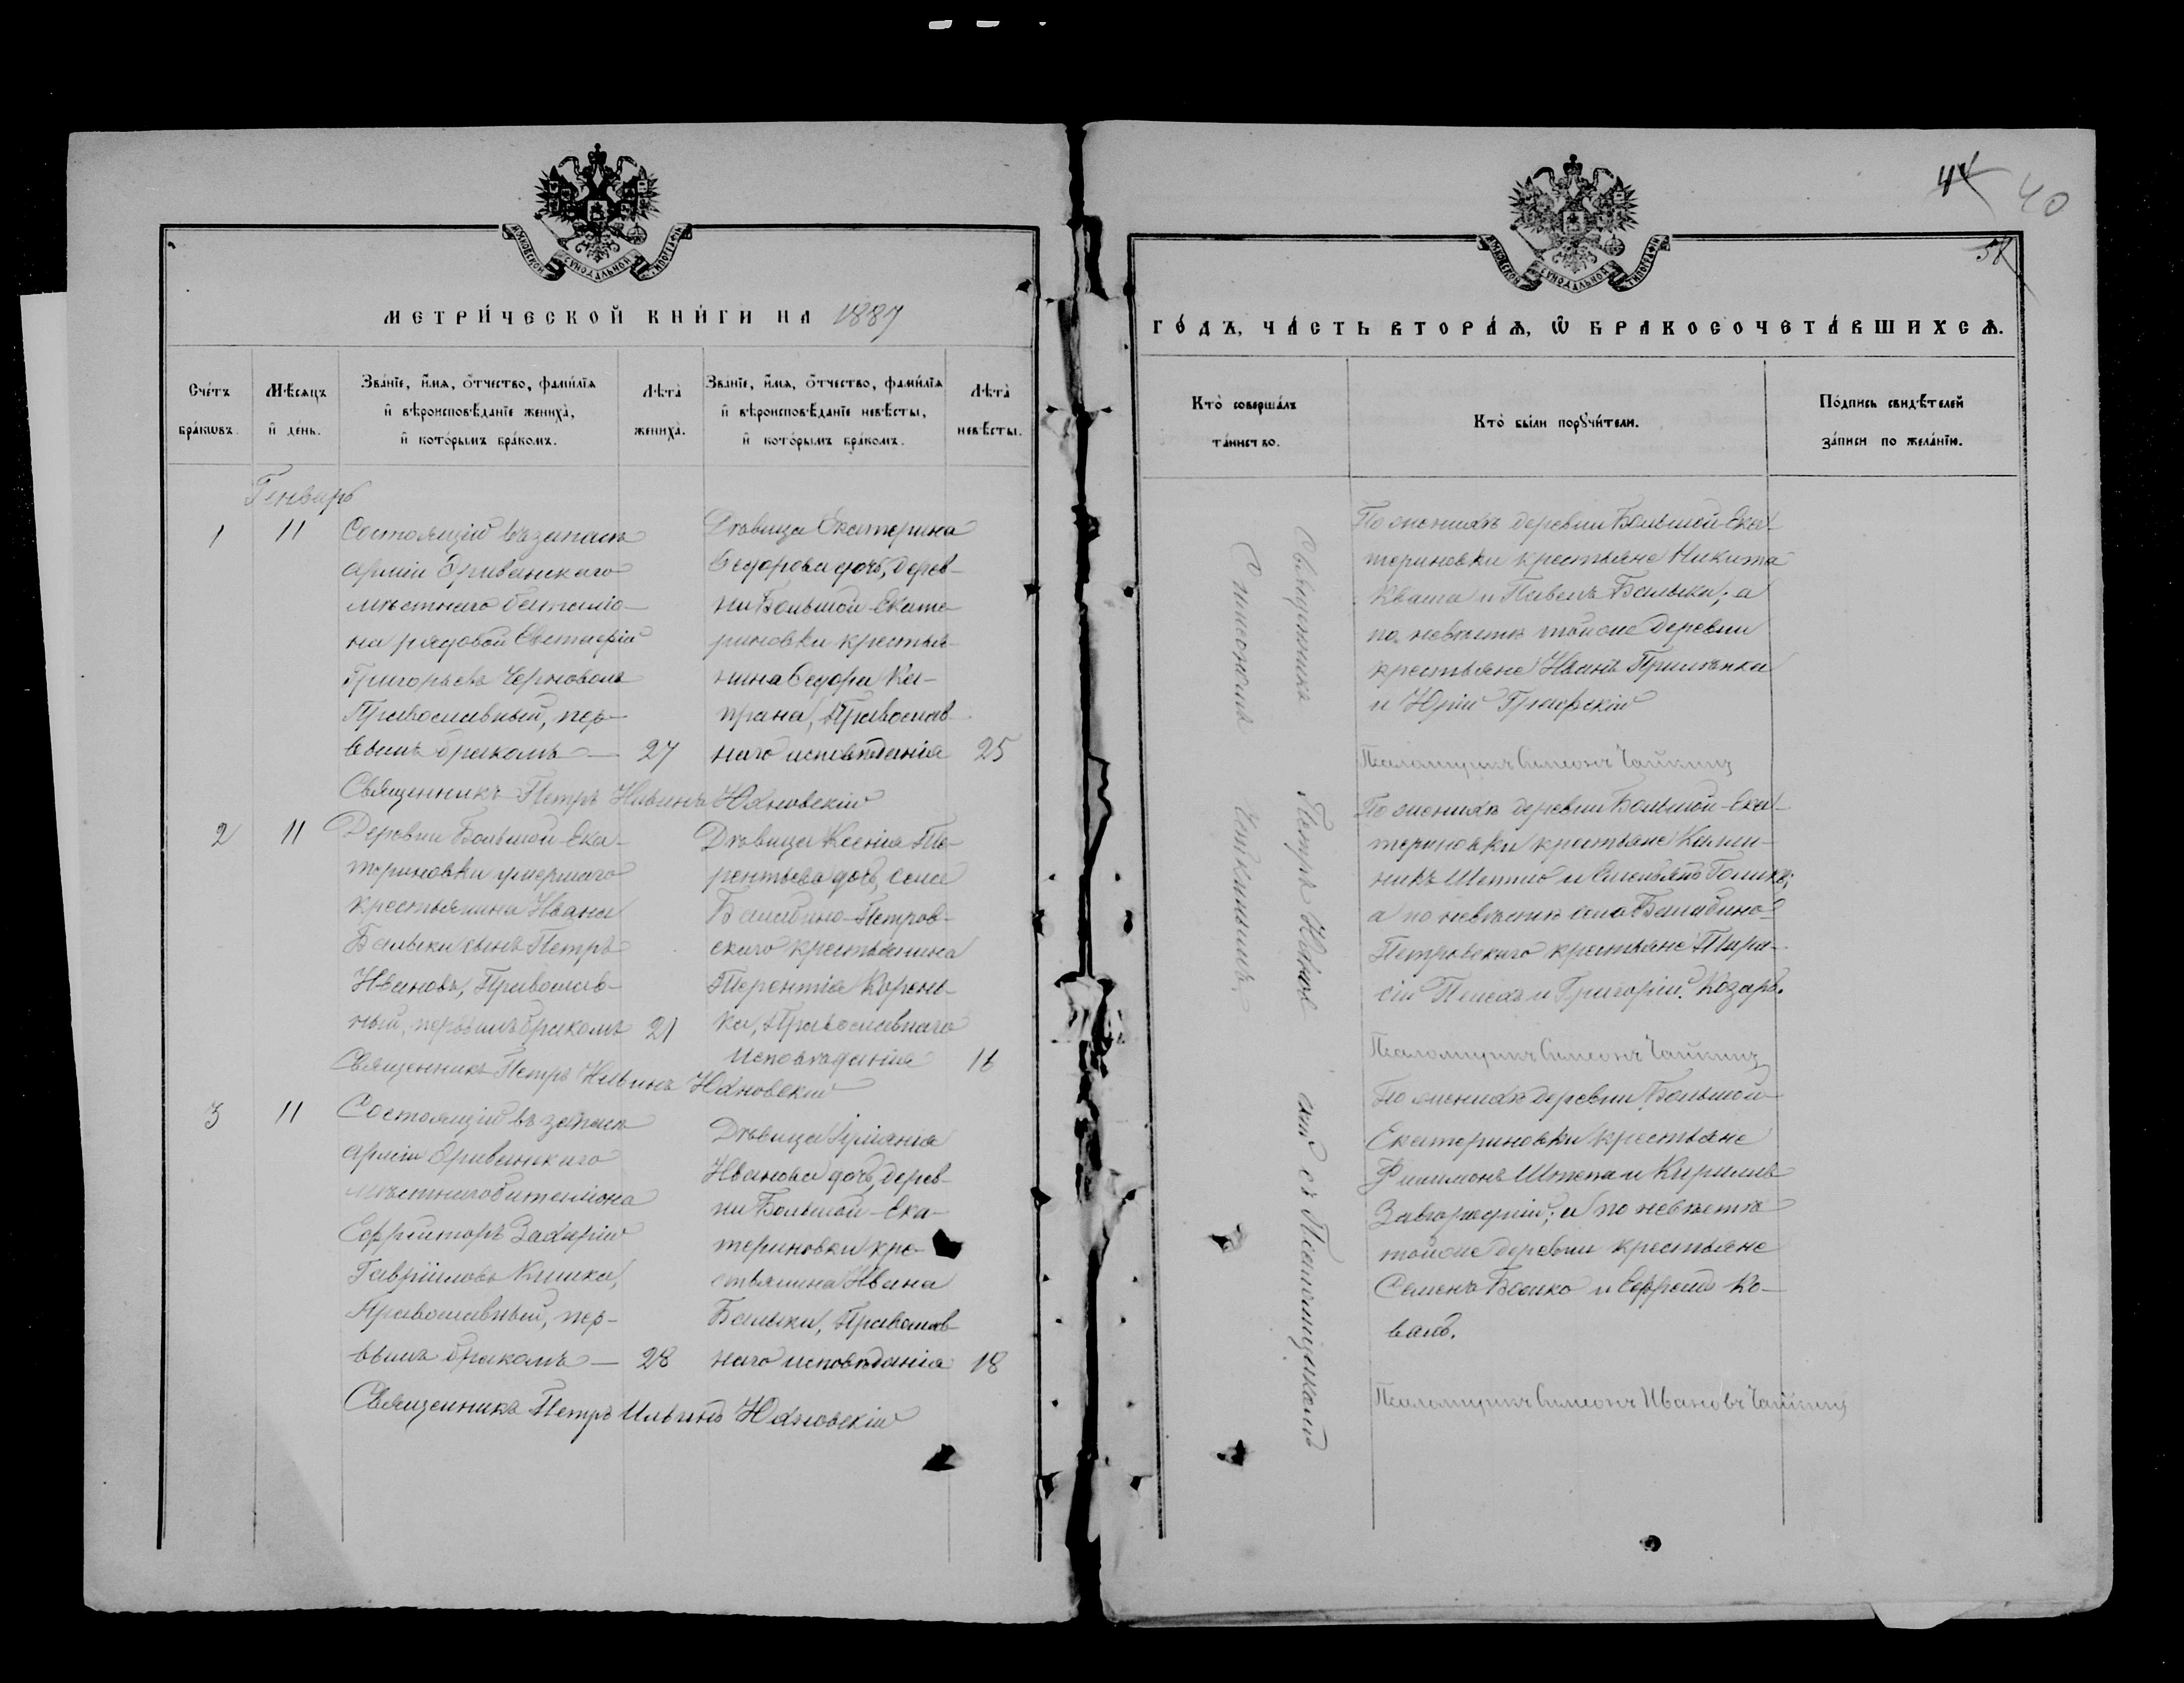 МОСКОВСКОЙ СѴНОДАЛЬНОЙ ТИПОГРАФІИ
МЕТРИ́ЧЕСКОЙ КНИ́ГИ НА 1887
Сче́тъ бра́кѡвъ.
Мѣ́сяцъ и҆ де́нь.
Зва́нїе, и҆́мѧ, ѻ҆́тчество, фами́лїѧ
и҆ вѣроисповѣ́данїе жениха̀,
и҆ кото́рымъ бра́комъ.
Лѣ́та жениха̀.
Зва́нїе, и҆́мѧ, ѻ҆́тчество, фами́лїѧ
и҆ вѣроисповѣ́данїе невѣ́сты,
и҆ кото́рымъ бра́комъ.
Лѣ́та невѣ́сты.
Генварь
1
11
Состоящій въ запасѣ
арміи Эриванскаго
мѣстнаго баталіо-
на рядовой Евстафій
Григорьевъ Черноволъ
Православный, пер-
вымъ бракомъ — 27
Дѣвица Екатерина
Ѳедорова дочь, дерев-
ни Большой-Екате-
риновки крестья-
нина Ѳедора Ка-
прана, Православ-
наго исповѣданія 25
Священникъ Петръ Ильинъ Юхновскій
2
11
Деревни Большой-Ека-
териновки умершаго
крестьянина Ивана
Балыки сынъ Петръ
Ивановъ, Православ-
ный, первымъ бракомъ 21
Дѣвица Ксенія Те-
рентьева дочь, села
Балабино-Петров-
скаго крестьянина
Терентія Корень-
ка, Православнаго
исповѣданія 18
Священникъ Петръ Ильинъ Юхновскій
3
11
Состоящій въ запасѣ
арміи Эриванскаго
мѣстнаго баталіона
Ефрейторъ Захарій
Гавріиловъ Кишка,
Православный, пер-
вымъ бракомъ — 28
Дѣвица Іуліанія
Иванова дочь, дерев-
ни Большой-Ека-
териновки кре-
стьянина Ивана
Балыки, Православ-
наго исповѣданія 18
Священникъ Петръ Ильинъ Юхновскій
44
40
МОСКОВСКОЙ СѴНОДАЛЬНОЙ ТИПОГРАФІИ
ГО́ДЪ, ЧА́СТЬ ВТОРА́Ѧ, Ѡ҆ БРАКОСОЧЕТА́ВШИХСѦ.
Кто̀ соверша́лъ
та́инство.
Кто̀ бы́ли порꙋчи́тели.
По́дпись свидѣ́телей
за́писи по жела́нїю.
Священникъ Петръ Юхновскій съ Псаломщикомъ
Симеономъ Чайкинымъ.
По женихѣ деревни Большой-Ека-
териновки крестьяне Никита
Кваша и Павелъ Балыка; а
по невѣстѣ тойже деревни
крестьяне Иванъ Примѣнка
и Юрій Графскій
Псаломщикъ Симеонъ Чайкинъ
По женихѣ деревни Большой-Ека-
териновки крестьяне Калли-
никъ Шепило и Емельянъ Голикъ;
а по невѣстѣ села Балабино-
Петровскаго крестьяне Тара-
сій Пелехъ и Григорій Козарь.
Псаломщикъ Симеонъ Чайкинъ
По женихѣ деревни Большой-
Екатериновки крестьяне
Филимонъ Шпепа и Кириллъ
Завгородній; а по невѣстѣ
тойже деревни крестьяне
Семенъ Бойко и Ефремъ Ко-
валь.
Псаломщикъ Симеонъ Ивановъ Чайкинъ